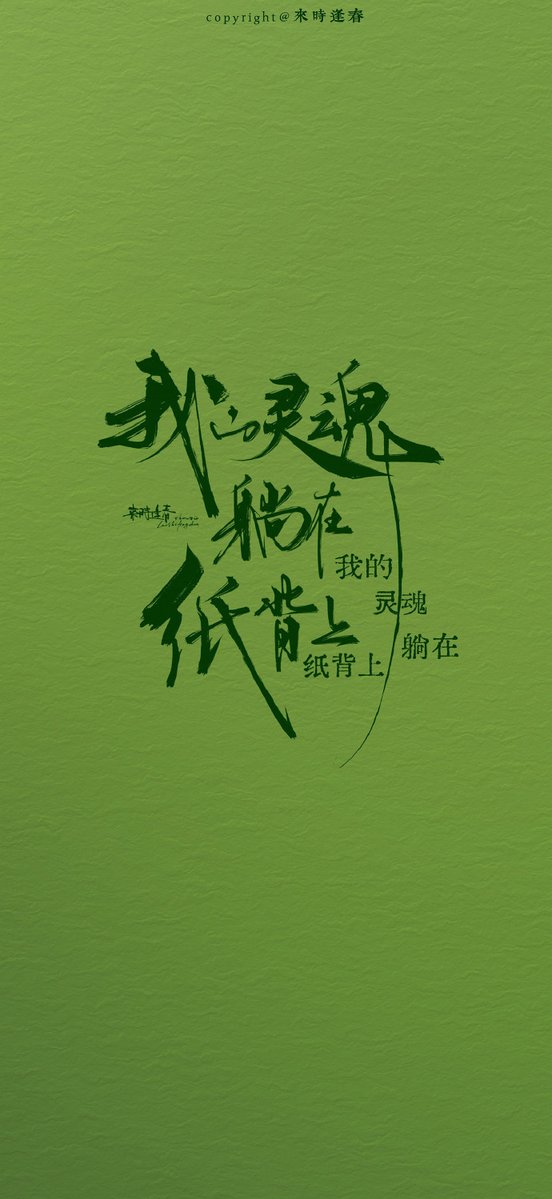 copyright@來時逢春
我的灵魂
躺在
來時逢春
纸背上
我的
灵魂
躺在
纸背上